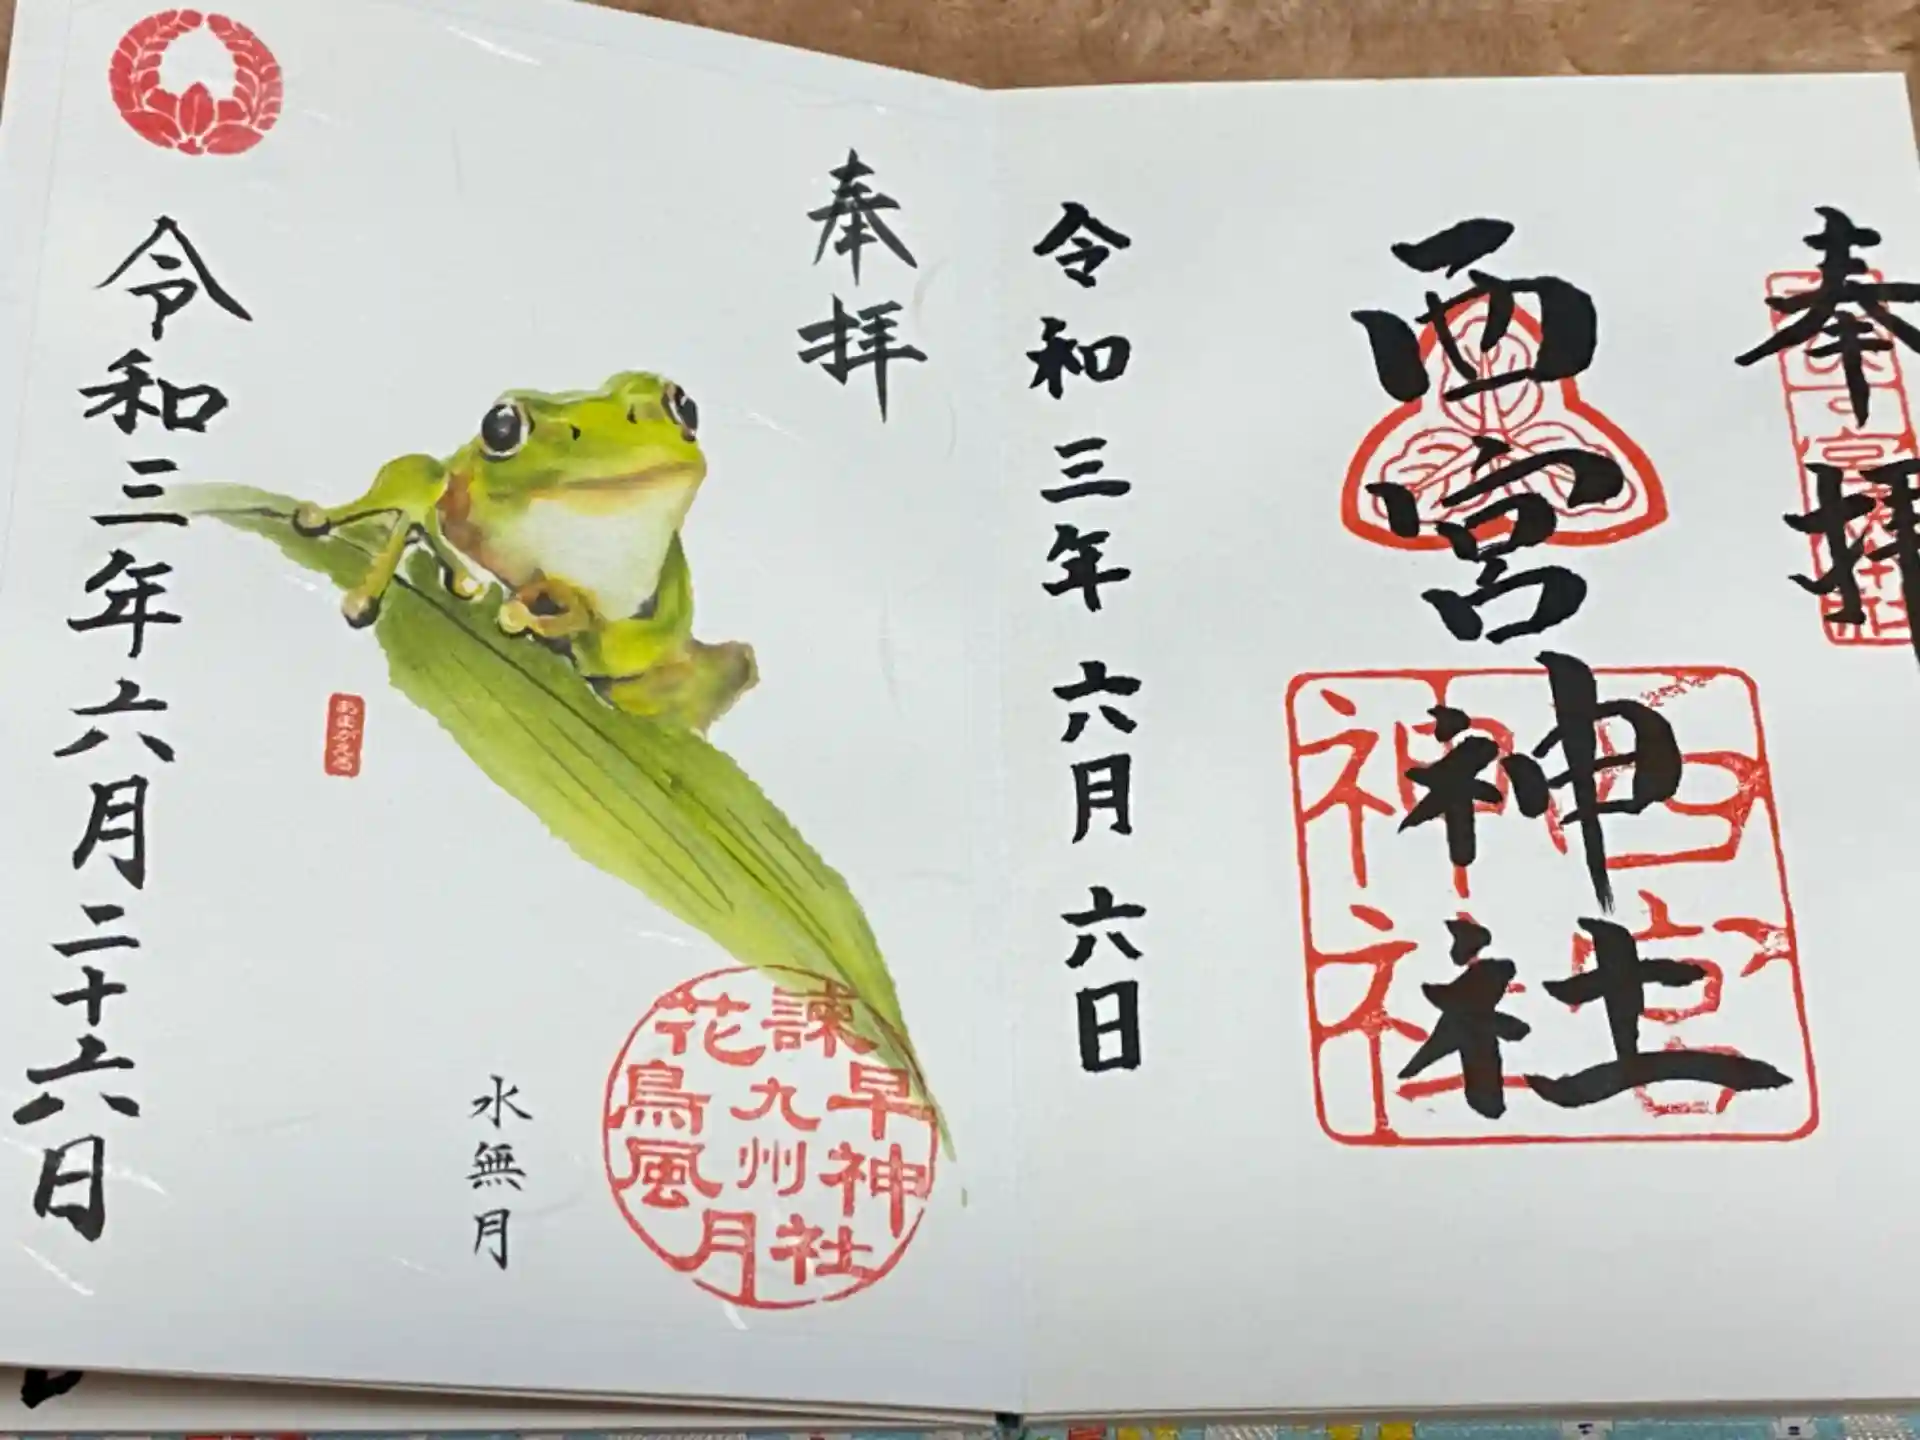 奉拝
西宮神社
西宮神社
令和三年六月六日
奉拝
諫早神社
九州
花鳥風月
水無月
あまがえる
令和三年六月二十六日